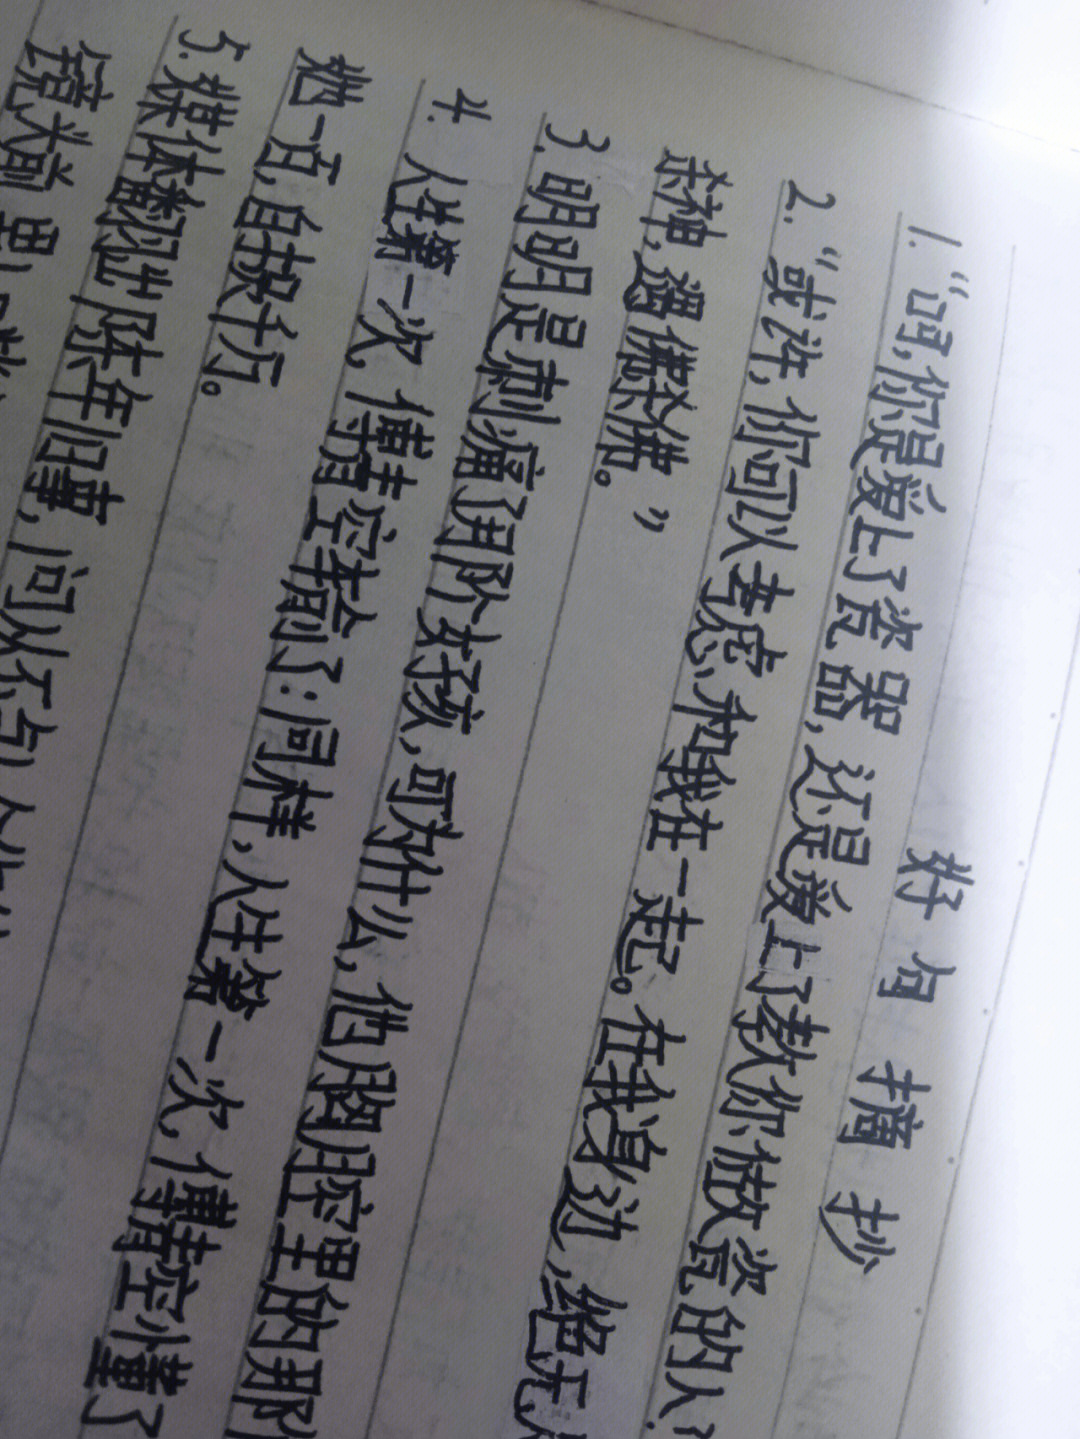 好句摘抄
1.“你是爱上了瓷器,还是爱上了教你做瓷的人?
2.“或许,你可以考虑,和我在一起。在我身边,绝无人
杀神,遇佛杀佛。”
3.明明是刺痛了那个女孩,可为什么,他胸腔里的那
4.人生第一次,傅靖空输了;同样,人生第一次,傅靖空懂了
她一百,自损千万。
5.媒体翻出陈年旧事,问从不与人
镜头前,男